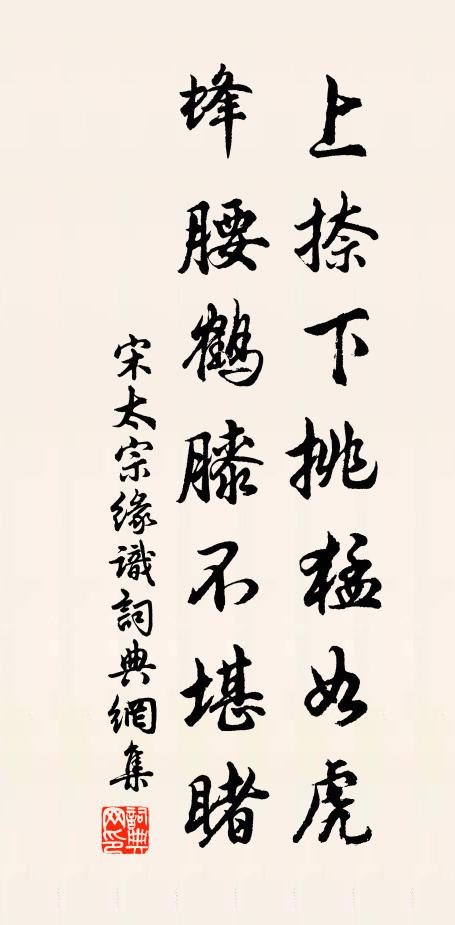 上捺下挑猛如虎
蜂腰鶴膝不堪睹
宋太宗緣識詞典網集
詞典
网印